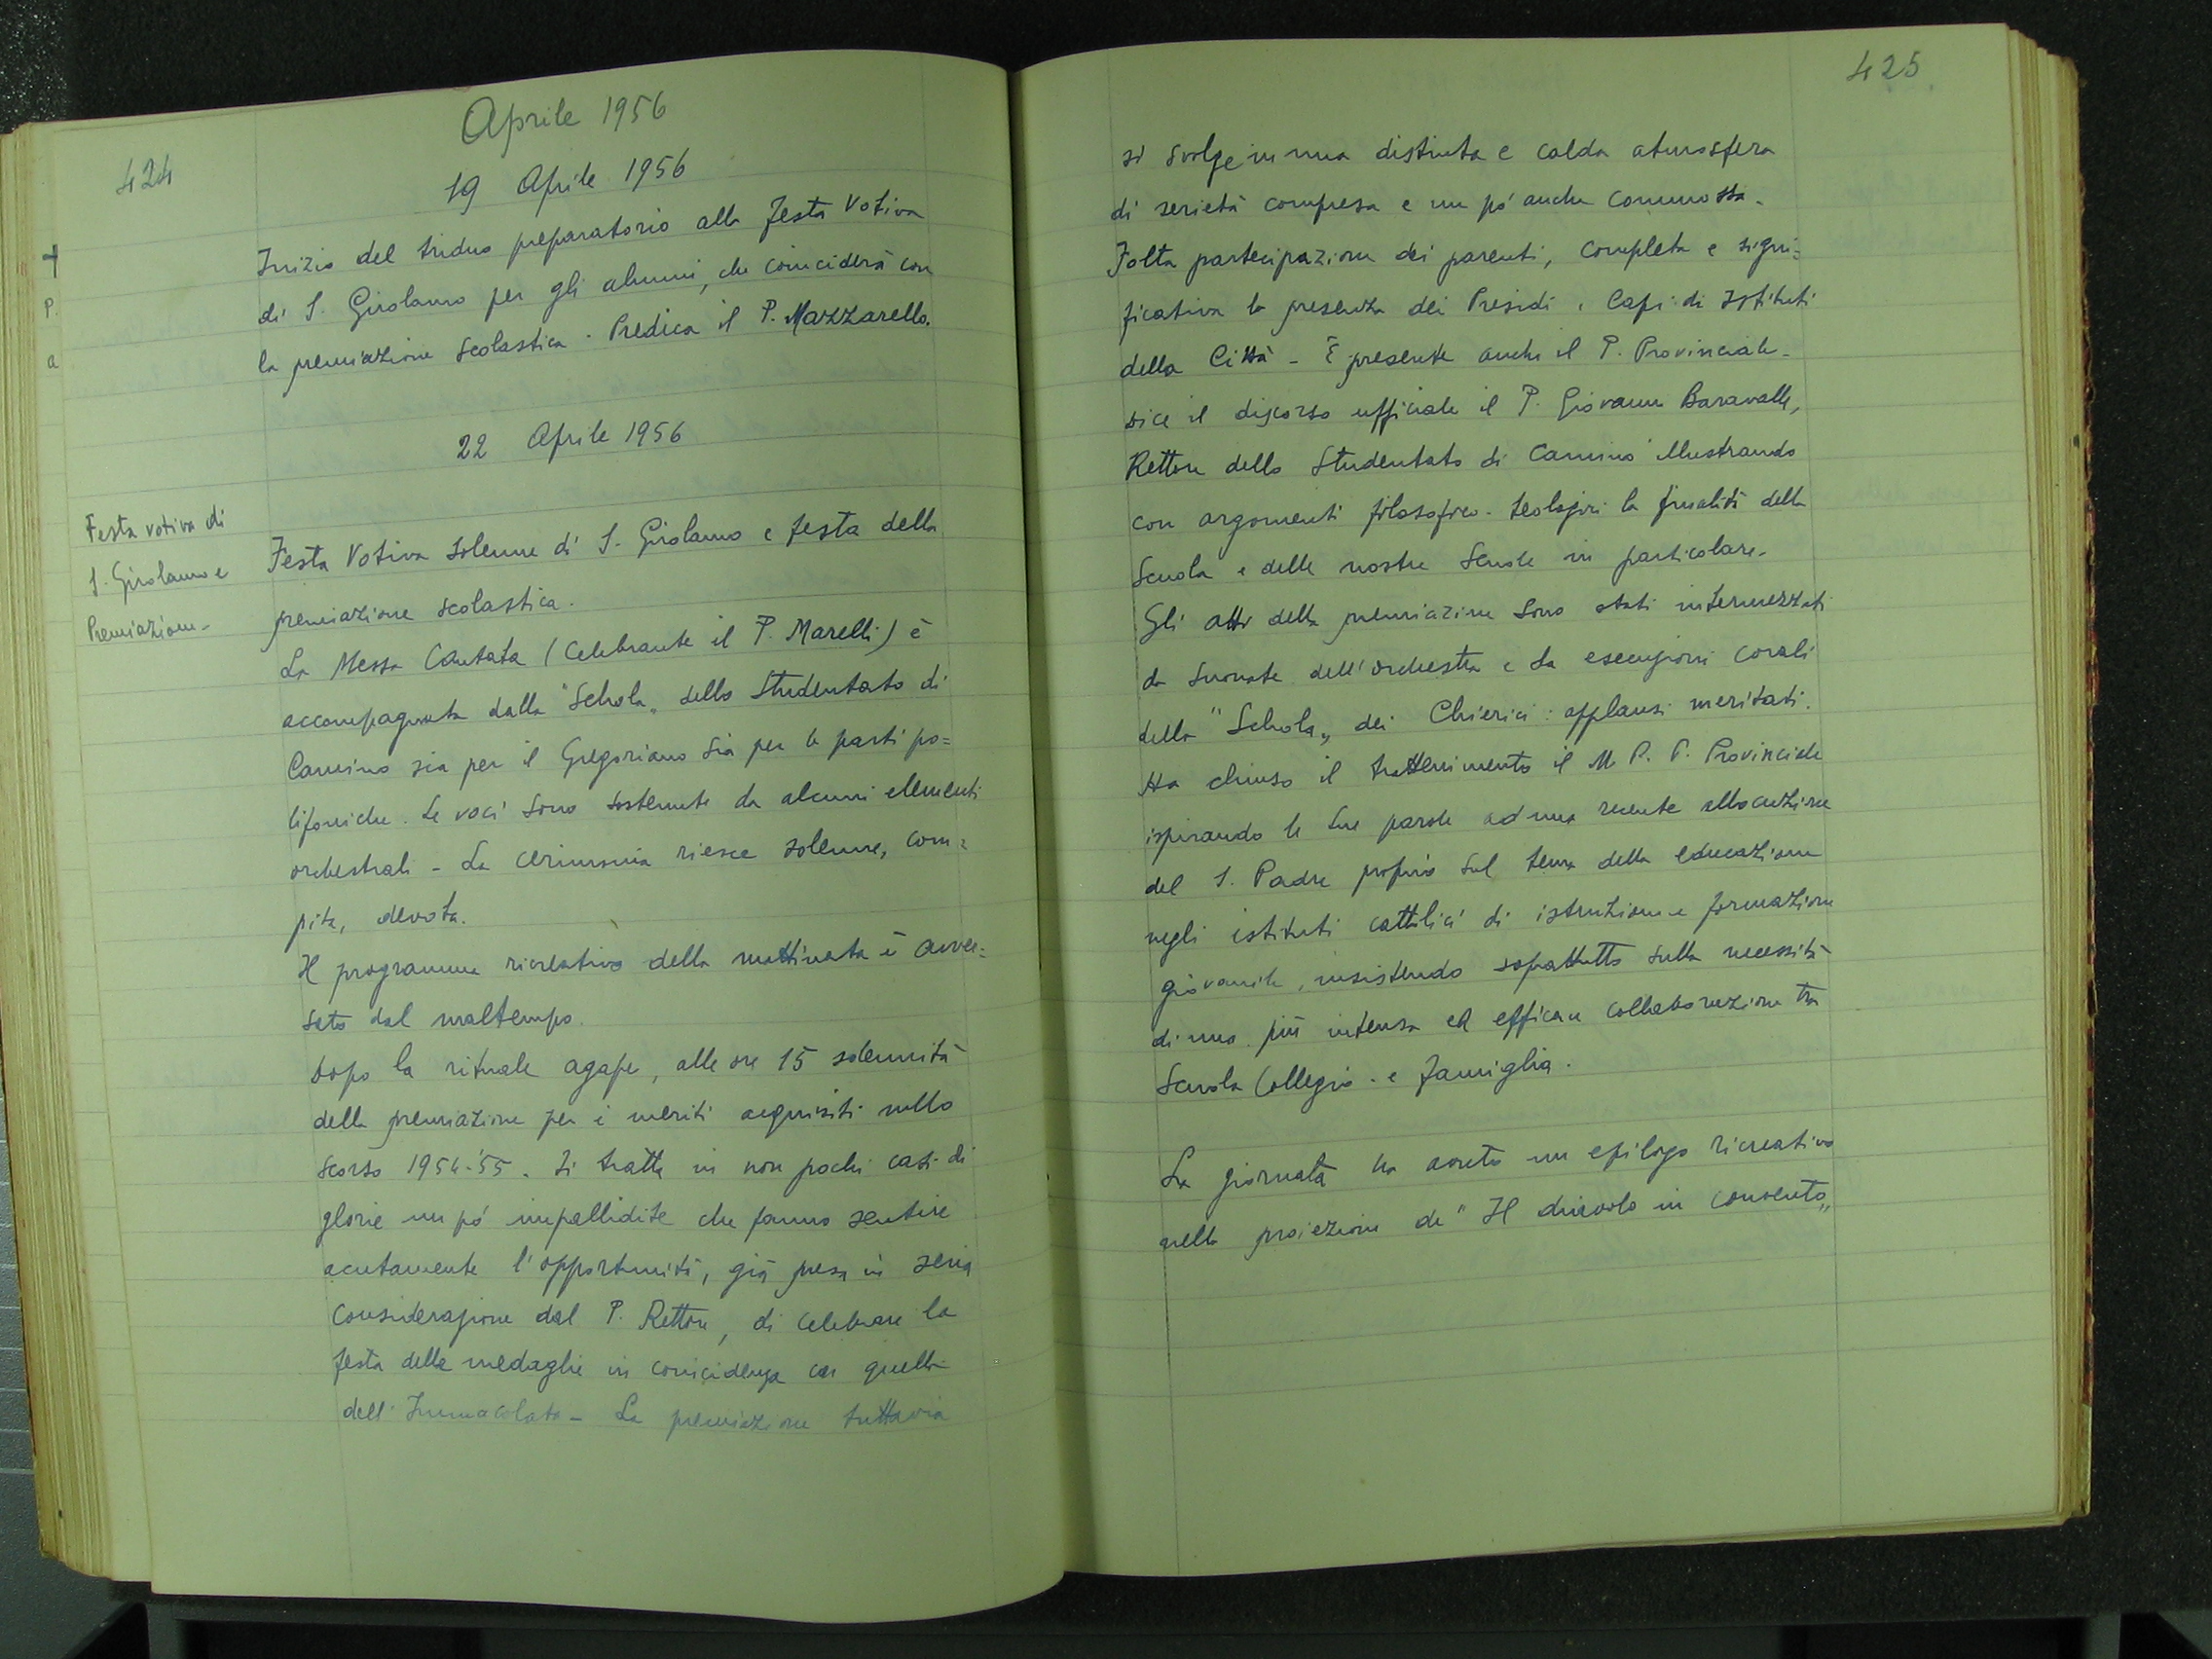 424
Aprile 1956
19 Aprile 1956
Inizio del triduo preparatorio alla Festa Votiva
di S. Girolamo per gli alunni, che coinciderà con
la premiazione scolastica. Predica il P. Mazzarello.
22 Aprile 1956
Festa votiva di
S. Girolamo e
Premiazione -
Festa Votiva solenne di S. Girolamo e festa della
premiazione scolastica.
La Messa Cantata (Celebrante il P. Marelli) è
accompagnata dalla "Schola" dello Studentato di
Camino sia per il Gregoriano sia per le parti po=
lifoniche. Le voci sono sostenute da alcuni elementi
orchestrali - La cerimonia riesce solenne, com=
pita, devota.
Il programma ricreativo della mattinata è avver=
sato dal maltempo.
Dopo la rituale agape, alle ore 15 solennità
della premiazione per i meriti acquisiti nello
scorso 1954-'55. Si tratta in non pochi casi di
glorie un pó impallidite che fanno sentire
acutamente l'opportunità, già presa in seria
considerazione dal P. Rettore, di celebrare la
festa delle medaglie in coincidenza con quella
dell'Immacolata - La premiazione tuttavia
425
si svolge in una distinta e calda atmosfera
di serietà compresa e un pó anche commossa.
Folta partecipazione dei parenti, completa e signi=
ficativa la presenza dei Presidi e Capi di Istituti
della Città - È presente anche il P. Provinciale -
Dice il discorso ufficiale il P. Giovanni Baravalle,
Rettore dello Studentato di Camino illustrando
con argomenti filosofico-teologici la finalità della
Scuola e delle nostre Scuole in particolare -
Gli atti della premiazione sono stati intermezzati
da suonate dell'orchestra e da esecuzioni corali
della "Schola" dei Chierici: applausi meritati.
Ha chiuso il trattenimento il M. P. P. Provinciale
ispirando le sue parole ad una recente allocuzione
del S. Padre proprio sul tema della educazione
negli istituti cattolici di istruzione e formazione
giovanile, insistendo soprattutto sulla necessità
di una più intensa ed efficace collaborazione tra
Scuola Collegio - e famiglia.
La giornata ha avuto un epilogo ricreativo
nella proiezione de "Il diavolo in convento"